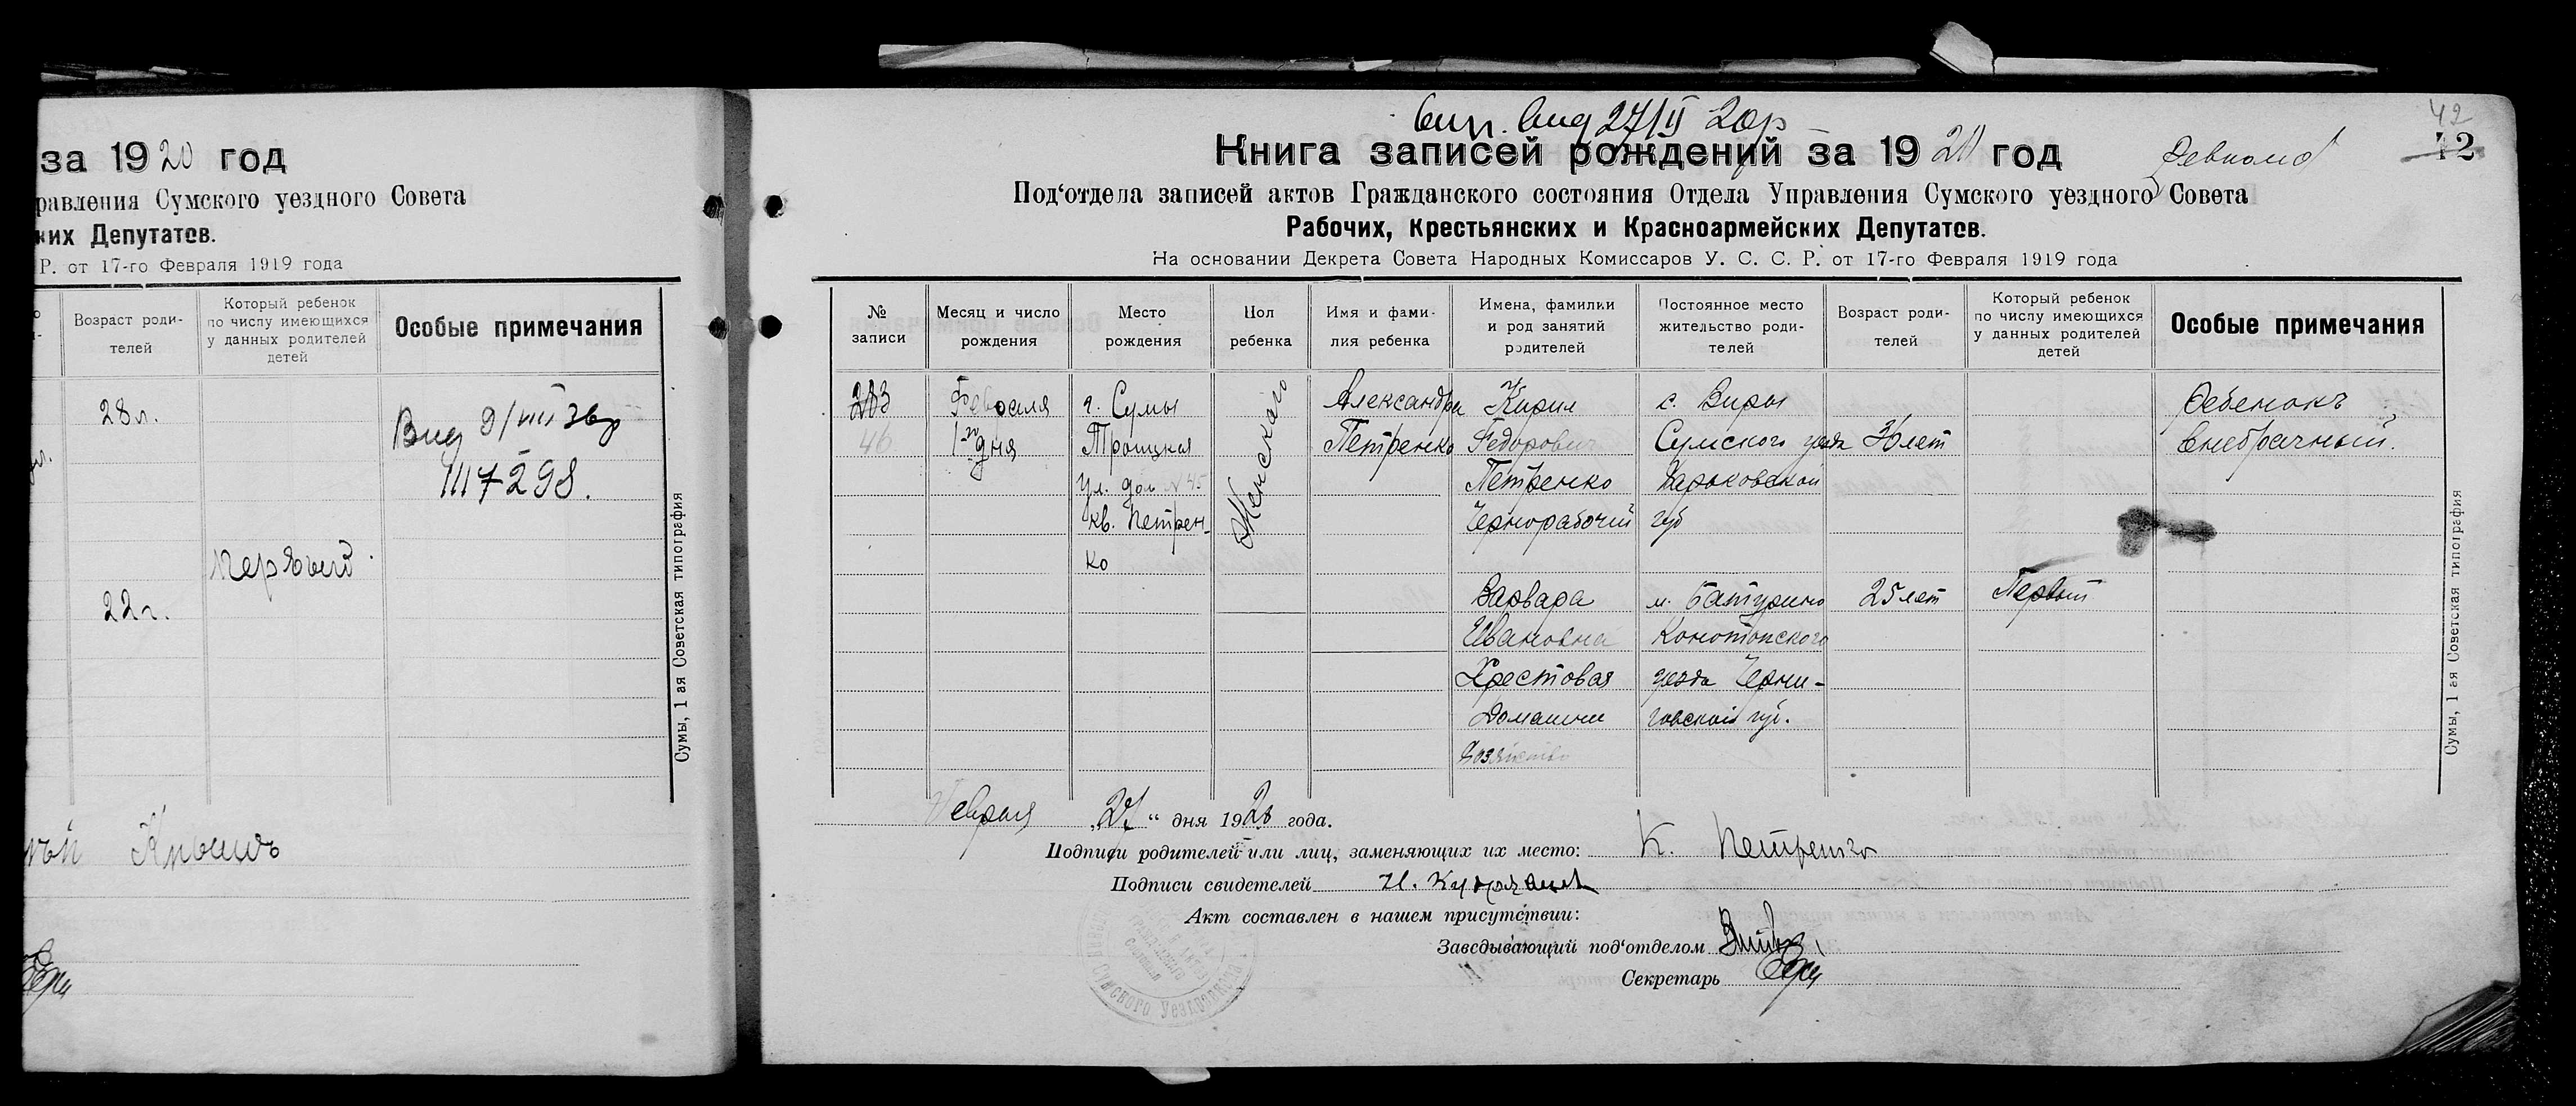 за 1920 год
равления Сумского уездного Совета
ких Депутатов.
Р. от 17-го Февраля 1919 года
Возраст роди-
телей
Который ребенок
по числу имеющихся
у данных родителей
детей
Особые примечания
28 л.
Первый
22 г.
Сумы, 1 ая Советская типография
42
12
Книга записей рождений за 1920 год
Под‘отдела записей актов Гражданского состояния Отдела Управления Сумского уездного Совета
Рабочих, Крестьянских и Красноармейских Депутатов.
На основании Декрета Совета Народных Комиссаров У. С. С. Р. от 17-го Февраля 1919 года
№
записи
Месяц и число
рождения
Место
рождения
Пол
ребенка
Имя и фами-
лия ребенка
Имена, фамилии
и род занятий
родителей
Постоянное место
жительство роди-
телей
Возраст роди-
телей
Который ребенок
по числу имеющихся
у данных родителей
детей
Особые примечания
46
Февраля
1-го дня
г. Сумы
Троицкая
ул. дом №45
кв. Петрен-
ко
Женскаго
Александра
Петренко
Кирил
Федорович
Петренко
Чернорабочий
с. Виры
Сумского уезда
Харьковской
губ
лет
Ребенокъ
внебрачный.
Варвара
Ивановна
Хрестовая
Домашнее
хозяйство
м. Батурино
Конотопского
уезда Черни-
говской губ.
25 лет
Первый
Февраля „27“ дня 1920 года.
Подписи родителей или лиц, заменяющих их место: К. Петренко
Подписи свидетелей И.
Акт составлен в нашем присутствии:
Заведывающий под‘отделом
Секретарь
Сумы, 1 ая Советская типография